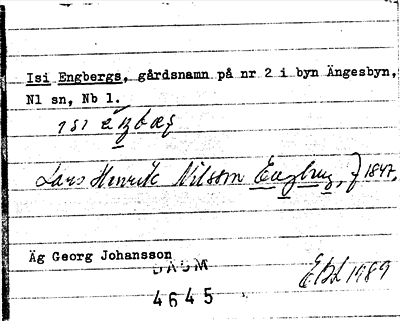 Isi Engbergs, gårdsnamn på nr 2 i byn Ängesbyn,
Nl sn, Nb l.
Lars Henrik Nilsson Engberg, f 1847,
Äg Georg Johansson
DAUM
EBL 1989
4645